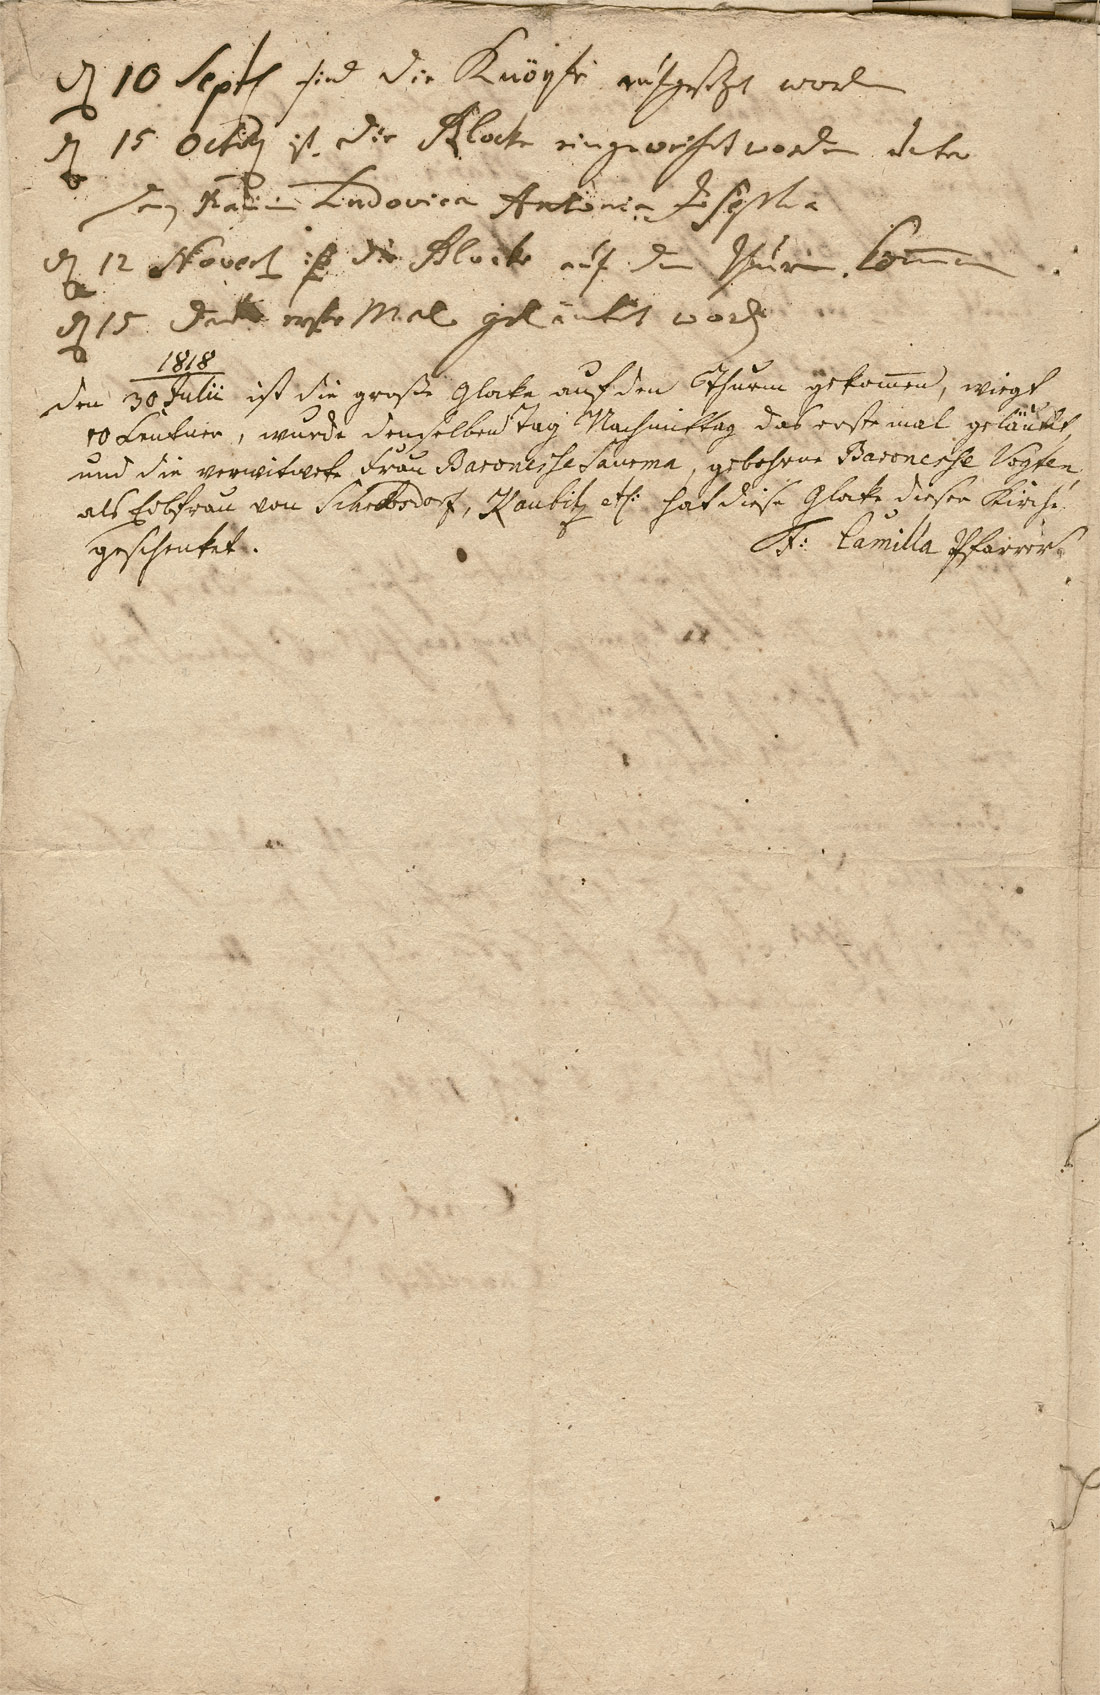 d 10 Sept sind die Knöpfe aufgesetzt word
d 15 Octb ist die Klocke eingeweihet worden unter
dem Namm Ludovica Antonia Josepha
d 12 Noveb ist die Klocke auf den Thurm Komen
d 15 das erste Mal geläutet word
1818
den 30 Julii ist die große Glocke auf den Thurm gekomen, wiegt
10 Centner, wurde denselben Tag Nachmittag das erste mal geläutet,
und die verwitwete Frau Baronesse Saurma, gebohrne Baronesse Vogten
als Erbfrau von Schrebsdorf, Kaubitz etc: hat diese Glocke dieser Kirche
geschenket.
F: Camilla Pfarrer